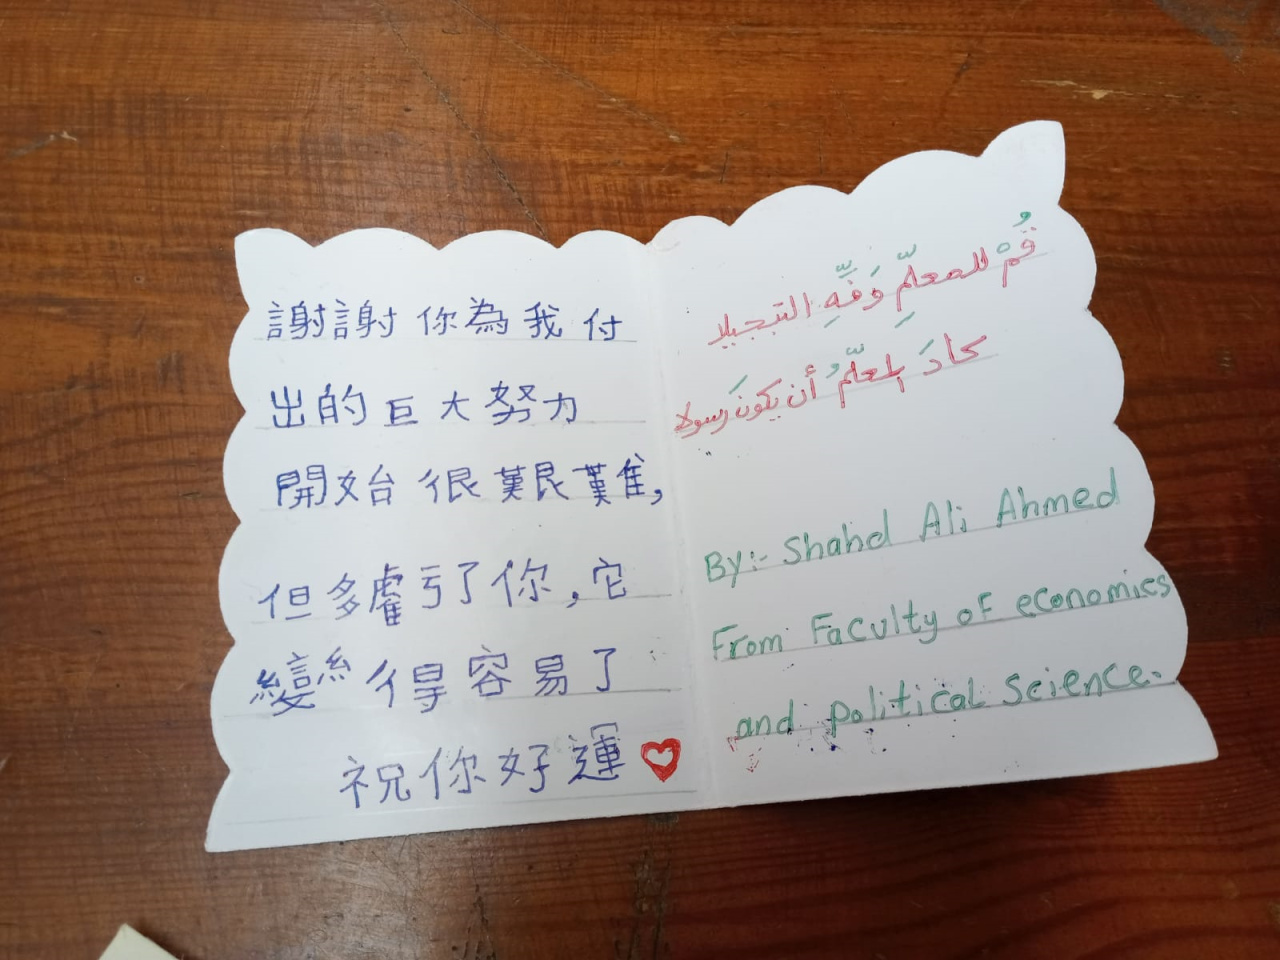 謝謝你為我付
出的巨大努力
開始很艱難,
但多虧了你,它
變得容易了
祝你好運
قُمْ للمعلّمِ وَفِّهِ التبجيلا
كادَ المعلّمُ أن يكونَ رسولا
By:- Shahd Ali Ahmed
From Faculty of economics
and political science.